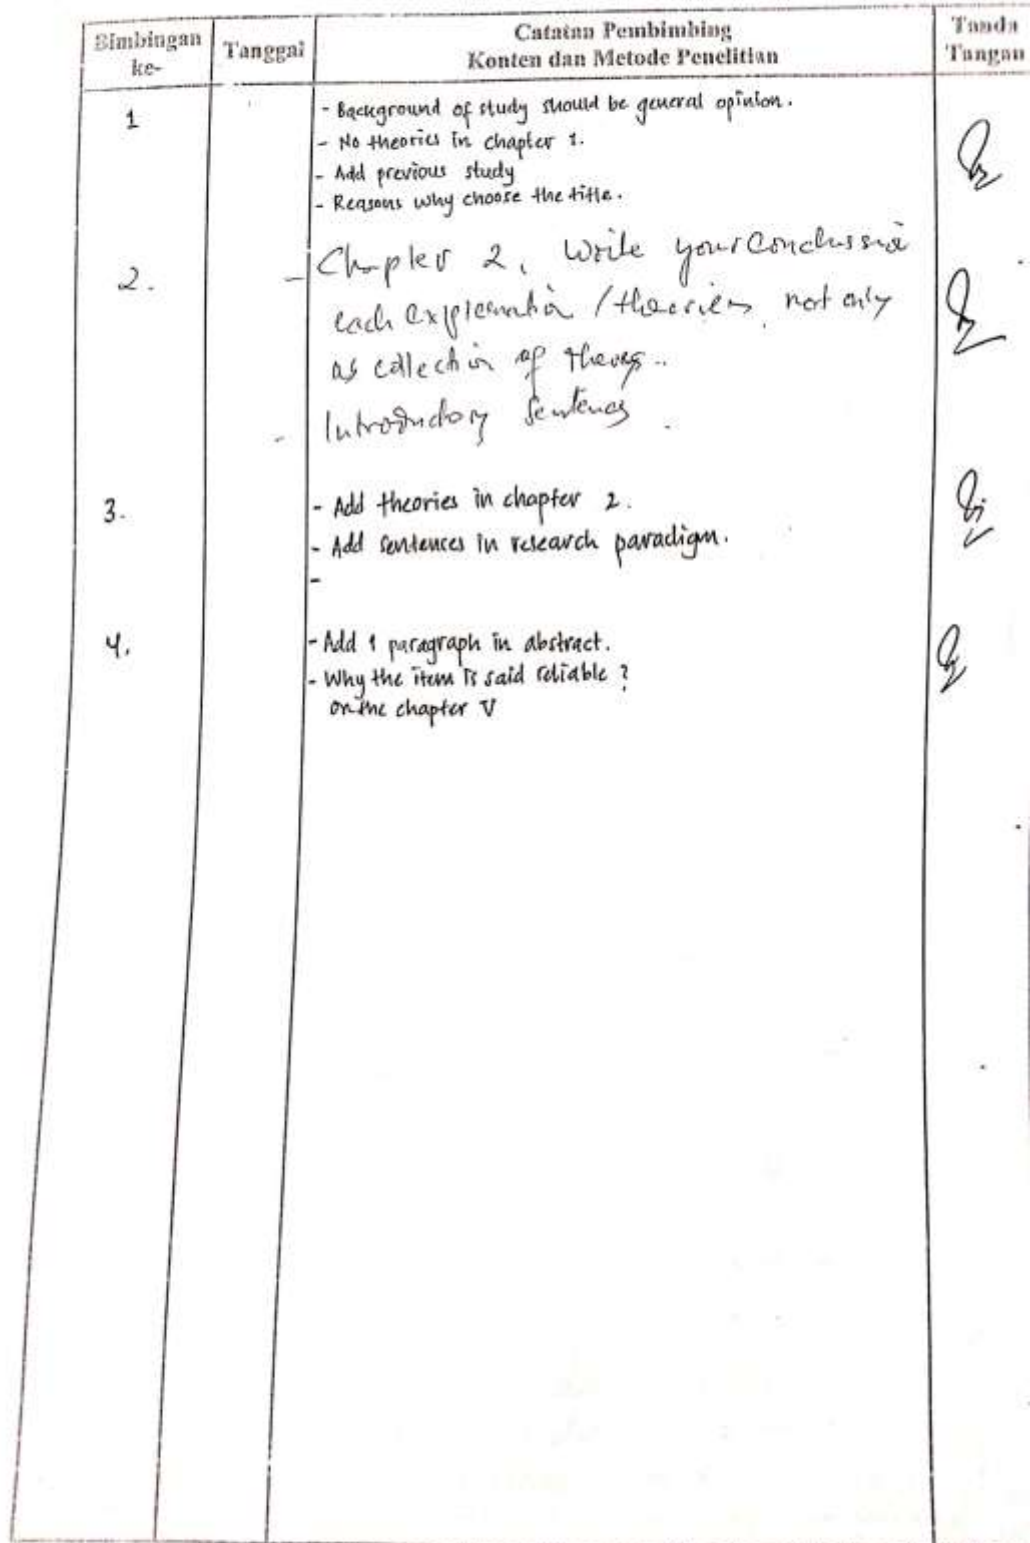 Bimbingan ke-
Tanggal
Catatan Pembimbing
Konten dan Metode Penelitian
Tanda Tangan
1
- Background of study should be general opinion.
- No theories in chapter 1.
- Add previous study
- Reasons why choose the title.
2.
- Chapter 2, Write your Conclussion
each explanation / theories, not only
as collection of
- Introductory Sentences.
3.
- Add theories in chapter 2.
- Add sentences in research paradigm.
-
4.
- Add 1 paragraph in abstract.
- Why the item is said reliable ?
on the chapter V